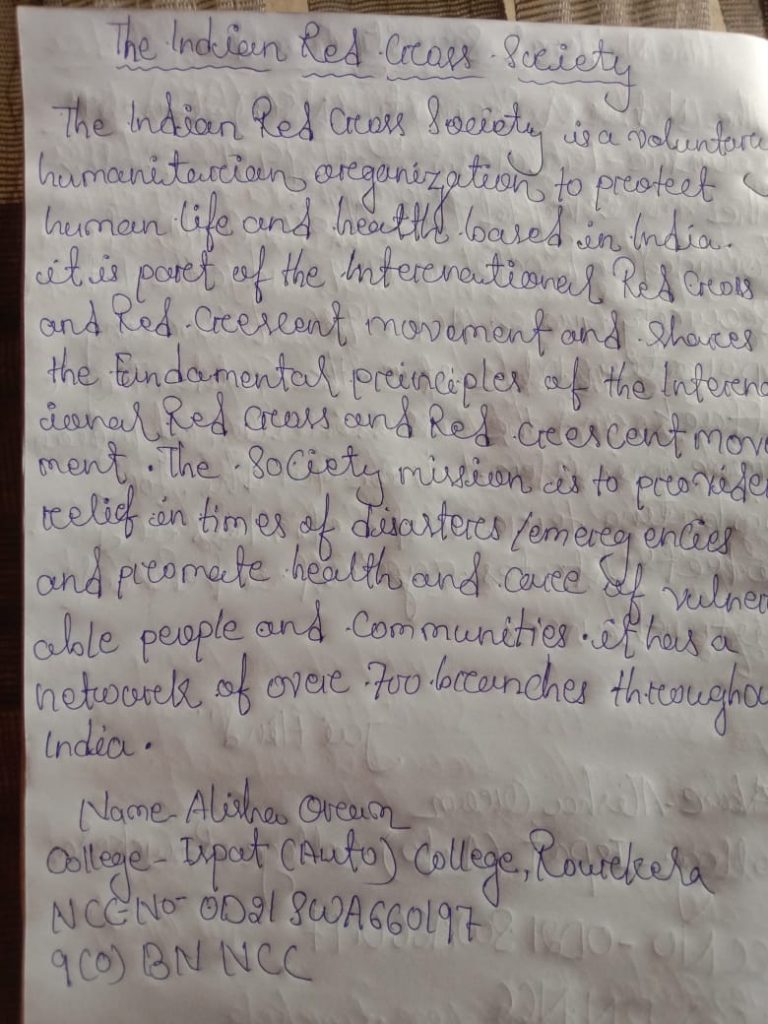 The Indian Red Cross Society
The Indian Red Cross Society is a voluntara
humanitarian oreganization to protect
human life and health based in India.
it is part of the International Red Cross
and Red Crescent movement and shares
the Fundamental principles of the Interna
cional Red Cross and Red Crescent move
ment. The Society mission is to provide
relief in times of disasters/emergencies
and promote health and care of vulner
able people and Communities. it has a
network of over 700 branches througho
India.
Name- Alisha Oram
College- Ispat (Auto) College, Rourkela
NCC NO- OD21SWA660197
9(O) BN NCC